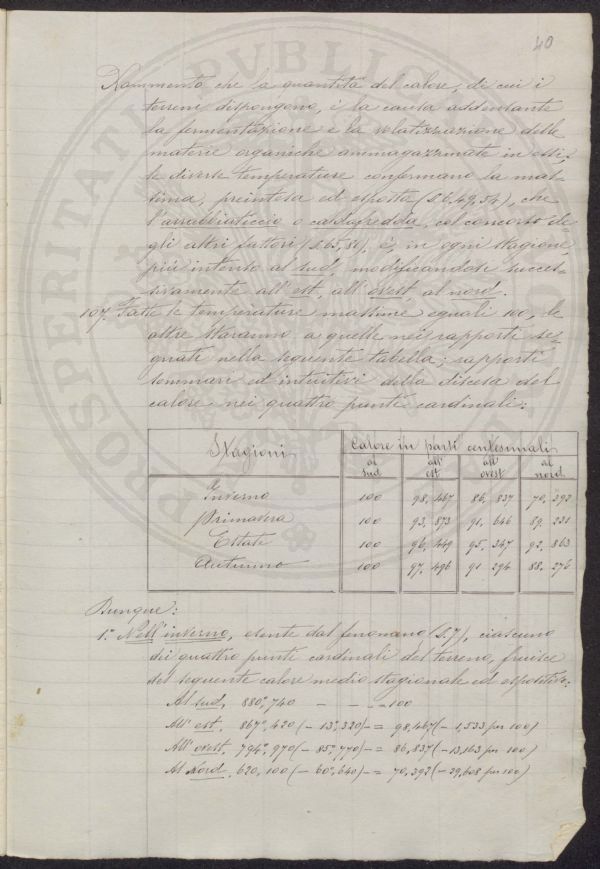 40
Rammento che la quantità del calore, di cui i
terreni dispongono, è la causa addentante
la fermentazione e la volatizzazione delle
materie organiche ammagazzinate in essi,
le diverse temperature confermano la mas-
sima, preintesa ed esposta (§. 6, 49, 54), che
l'arrabbiaticcio o caldafredda, col concorso de-
gli altri fattori (§. 65, 86), è, in ogni stagione,
più intenso al sud, modificandosi succes-
sivamente all'est, all'ovest, al nord.
107. Fatte le temperature massime eguali 100, le
altre staranno a quelle nei rapporti se-
gnati nella seguente tabella; rapporti
sommari ed intuitivi della discesa del
calore nei quattro punti cardinali:
Stagioni
Calore in parti centesimali
al sud
all' est
all' ovest
al nord
Inverno 100 98,467 86,837 70,392
Primavera 100 93,873 91,646 89,231
Estate 100 96,449 95,347 92,863
Autunno 100 97,496 91,294 88,276
Dunque:
1.° Nell'inverno, esente dal fenomano (§. 7), ciascuno
dei quattro punti cardinali del terreno, fruisce
del seguente calore medio stagionale ed espositivo:
Al sud, 880°,740 — — — 100
All' est, 867°,420 (— 13°,320) — = 98,467 (— 1,533 per 100)
All' ovest, 794°,970 (— 85°,770) — = 86,837 (— 13,163 per 100)
Al Nord, 620,100 (— 60°,640) — = 70,392 (— 29,608 per 100)
PROSPERITATI PVBLICAE